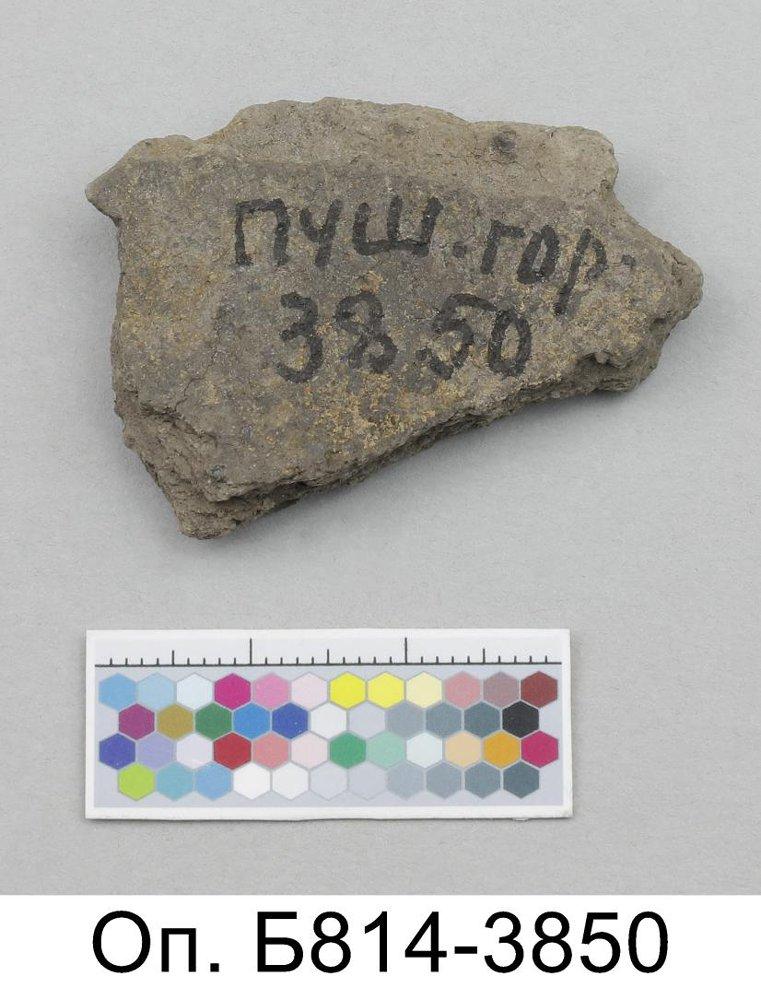 пуш.гор.
3850
Оп. Б814-3850